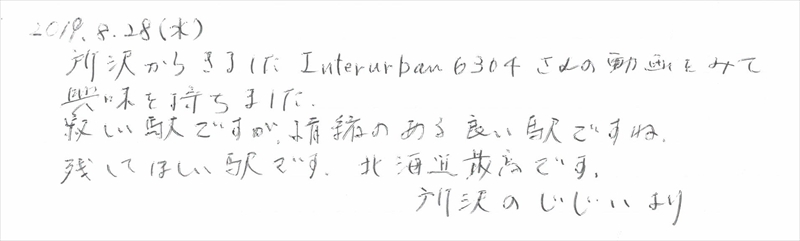 2019.8.28(水)
所沢からきました Interurban6304さんの動画をみて
興味を持ちました.
寂しい駅ですが、情緒のある良い駅ですね.
残してほしい駅です. 北海道最高です.
所沢のじじいより